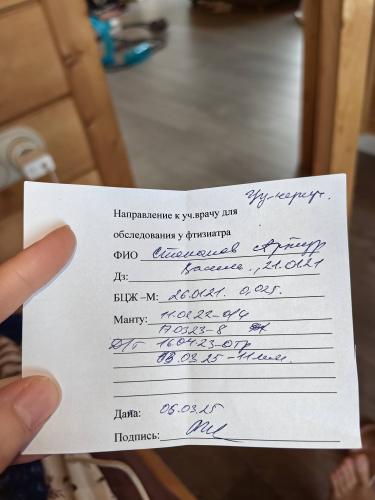 Направление к уч.врачу для
обследования у фтизиатра
ФИО Степанов Артур
Дз: 21.01.21
БЦЖ –М: 26.01.21. 0,025.
Манту: 11.02.22-о/г
17.03.23-8
Д/т 16.04.23-отр
03.03.25-11мм.
Дана: 05.03.25
Подпись: